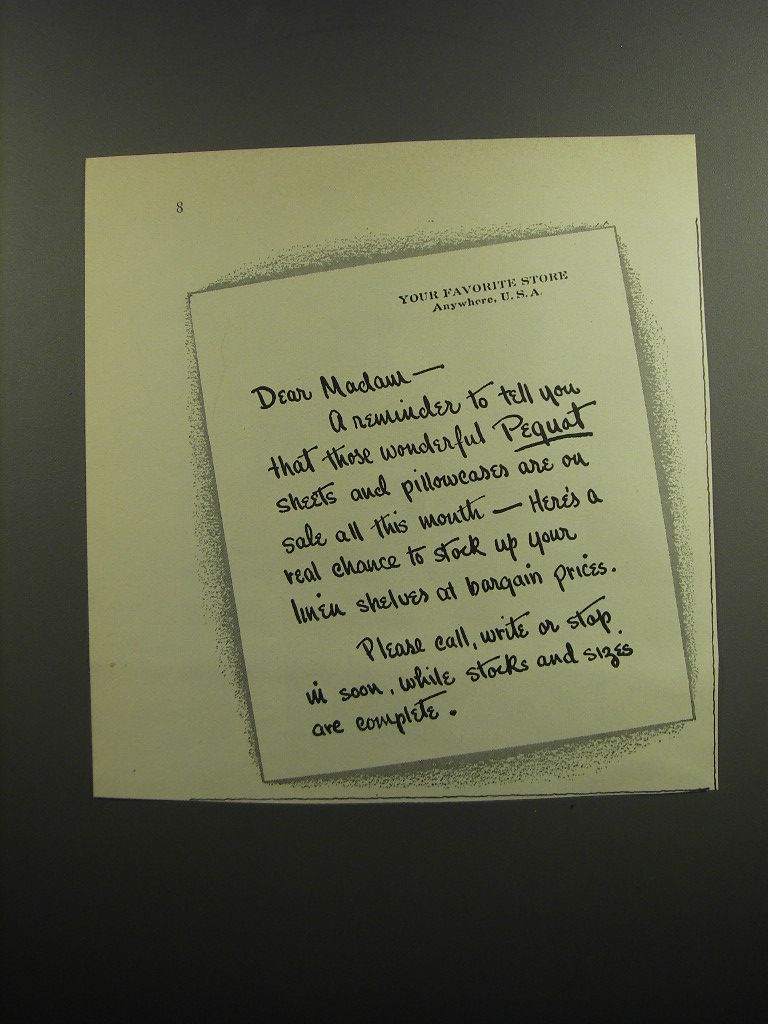 8
YOUR FAVORITE STORE
Anywhere, U. S. A.
Dear Madam —
A reminder to tell you
that those wonderful Pequot
sheets and pillowcases are on
sale all this month — Here's a
real chance to stock up your
linen shelves at bargain prices.
Please call, write or stop
in soon, while stocks and sizes
are complete.